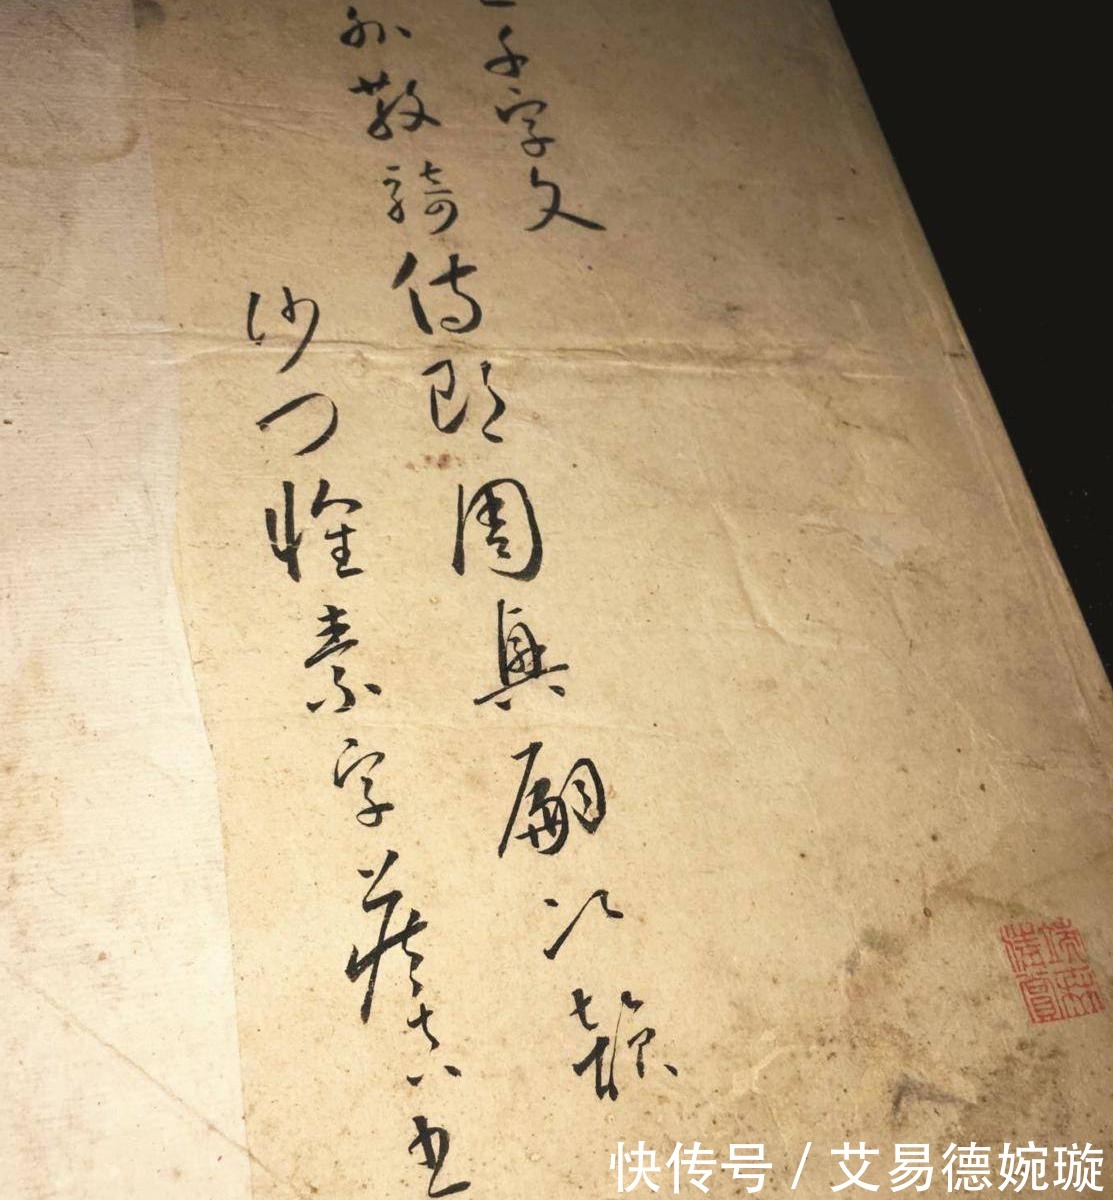 千字文
外散騎侍郎周興嗣次韻
沙門懷素字藏真書
快传号 / 艾易德婉璇